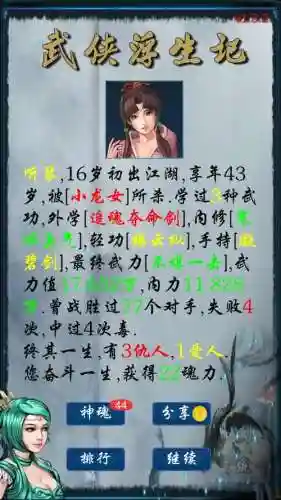 武侠浮生记
听琴,16岁初出江湖,享年43
岁,被[小龙女]所杀.学过3种武
功,外学[追魂夺命剑],内修[
],轻功[梯云纵],手持[凝
碧剑],最终武力[不堪一击],武
力值17.632万,内力11.828
万.曾战胜过77个对手,失败4
次,中过4次毒.
终其一生,有3仇人,1爱人.
您奋斗一生,获得22魂力.
神魂 44 分享
排行 继续